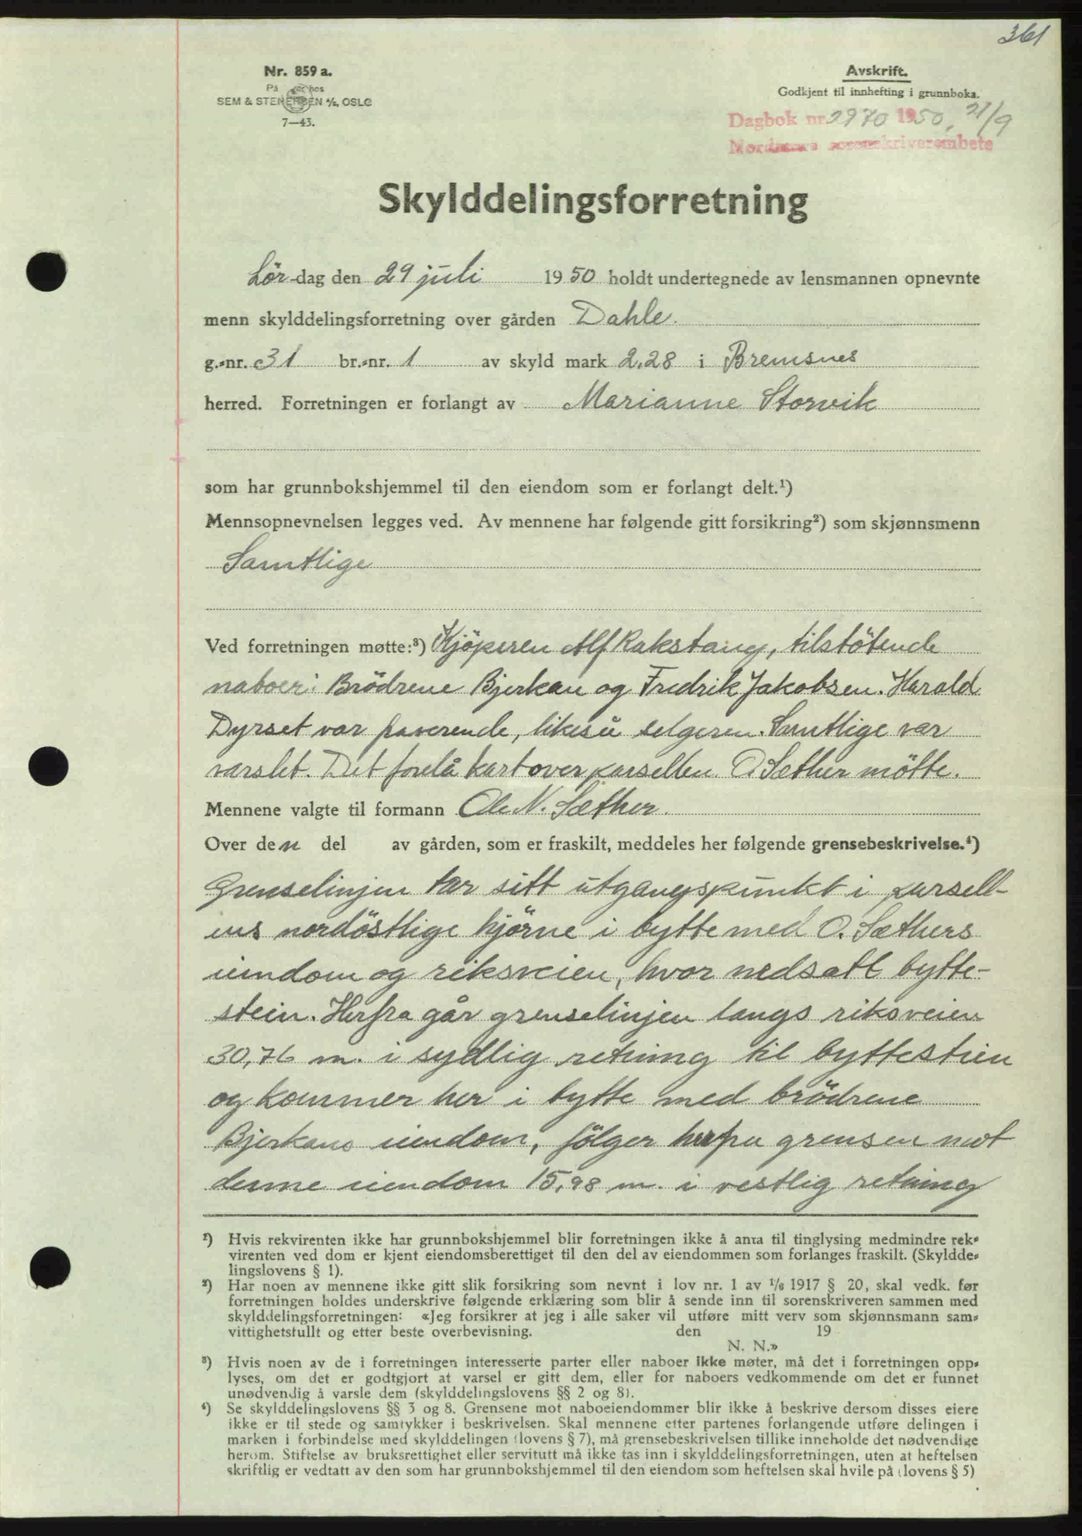 361
Nr. 859 a.
På hos
SEM & STENERSEN A/S, OSLO
7—43.
Avskrift.
Godkjent til innhefting i grunnboka.
Dagbok nr 2970 1950, 21/9
Nordmøre sorenskriverembete
Skylddelingsforretning
Lör-dag den 29 juli 1950 holdt undertegnede av lensmannen opnevnte
menn skylddelingsforretning over gården Dahle.
g.-nr. 31 br.-nr. 1 av skyld mark 2,28 i Bremsnes
herred. Forretningen er forlangt av Marianne Storvik
som har grunnbokshjemmel til den eiendom som er forlangt delt.¹)
Mennsopnevnelsen legges ved. Av mennene har følgende gitt forsikring²) som skjønnsmenn
Samtlige
Ved forretningen møtte:³) Kjöperen Alf Rakstang, tilstötende
naboer: Brödrene Bjerkan og Fredrik Jakobsen. Harald
Dyrset var fraverende, likeså selgeren. Samtlige var
varslet. Det forelå kart over parsellen. O. Sæther mötte.
Mennene valgte til formann Ole N. Sæther.
Over den del av gården, som er fraskilt, meddeles her følgende grensebeskrivelse.⁴)
Grenselinjen tar sitt utgangspunkt i parsell-
ens nordöstlige hjörne i bytte med O. Sæthers
eiendom og riksveien, hvor nedsatt bytte-
stein. Herfra går grenselinjen langs riksveien
30,76 m. i sydlig retning til byttestein
og kommer her i bytte med brödrene
Bjerkans eiendom, fölger herfra grensen mot
denne eiendom 15,98 m. i vestlig retning
¹) Hvis rekvirenten ikke har grunnbokshjemmel blir forretningen ikke å anta til tinglysing medmindre rek-
virenten ved dom er kjent eiendomsberettiget til den del av eiendommen som forlanges fraskilt. (Skyldde-
lingslovens § 1).
²) Har noen av mennene ikke gitt slik forsikring som nevnt i lov nr. 1 av 1/6 1917 § 20, skal vedk. før
forretningen holdes underskrive følgende erklæring som blir å sende inn til sorenskriveren sammen med
skylddelingsforretningen: «Jeg forsikrer at jeg i alle saker vil utføre mitt verv som skjønnsmann sam-
vittighetsfullt og etter beste overbevisning. den 19
N. N.»
³) Hvis noen av de i forretningen interesserte parter eller naboer ikke møter, må det i forretningen opp-
lyses, om det er godtgjort at varsel er gitt dem, eller for naboers vedkommende om det er funnet
unødvendig å varsle dem (skylddelingslovens §§ 2 og 8).
⁴) Se skylddelingslovens §§ 3 og 8. Grensene mot naboeiendommer blir ikke å beskrive dersom disses eiere
ikke er til stede og samtykker i beskrivelsen. Skal mennene etter partenes forlangende utføre delingen i
marken i forbindelse med skylddelingen (lovens § 7), må grensebeskrivelsen tillike inneholde det nødvendige
herom. Stiftelse av bruksrettighet eller servitutt må ikke tas inn i skylddelingsforretningen, uten at heftelsen
skriftlig er vedtatt av den som har grunnbokshjemmel til den eiendom som heftelsen skal hvile på (lovens § 5)